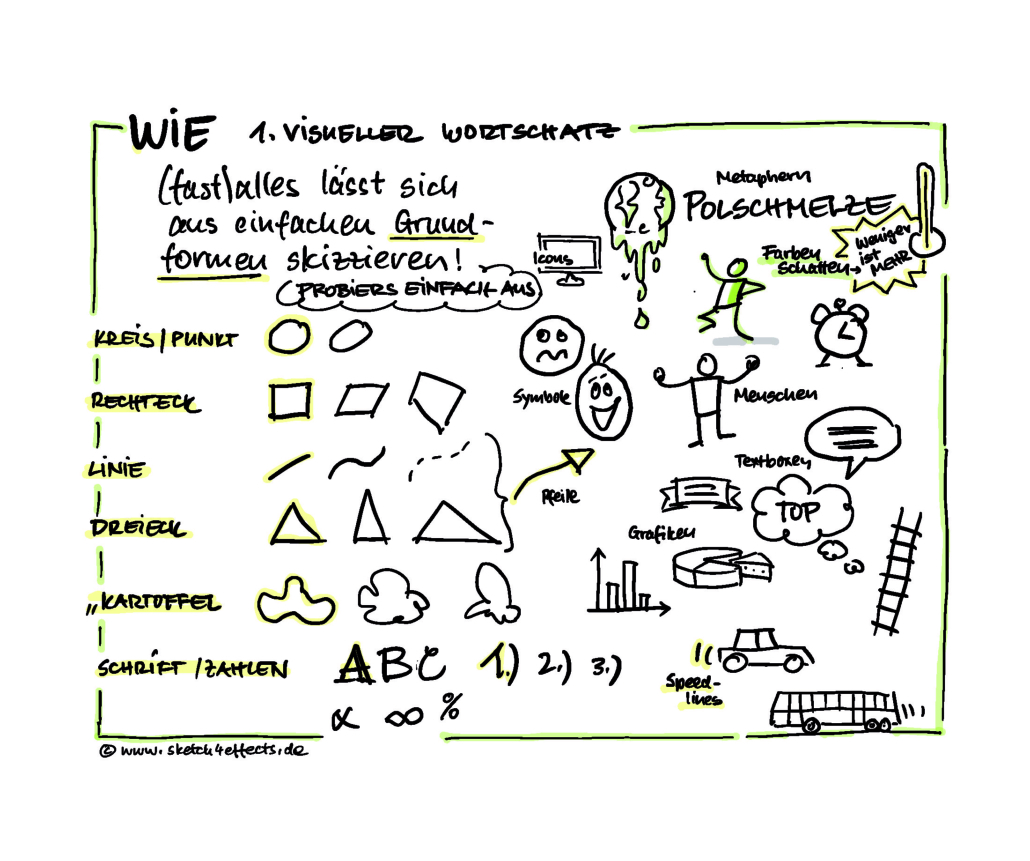 WIE 1. VISUELLER WORTSCHATZ
(fast) alles lässt sich
aus einfachen Grund-
formen skizzieren!
(PROBIERS EINFACH AUS
Icons
Metaphern
POLSCHMELZE
Farben
Schatten→
Weniger
ist
MEHR
KREIS/PUNKT
RECHTECK
LINIE
DREIECK
„KARTOFFEL
SCHRIFT/ZAHLEN
ABC 1.) 2.) 3.)
∝ ∞ %
Symbole
Menschen
Pfeile
Textboxen
TOP
Grafiken
Speed-
lines
© www.sketch4effects.de